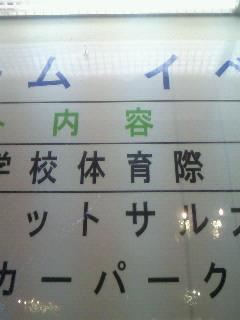 ム イベ
ト 内 容
学校体育際
ットサル
カーパーク